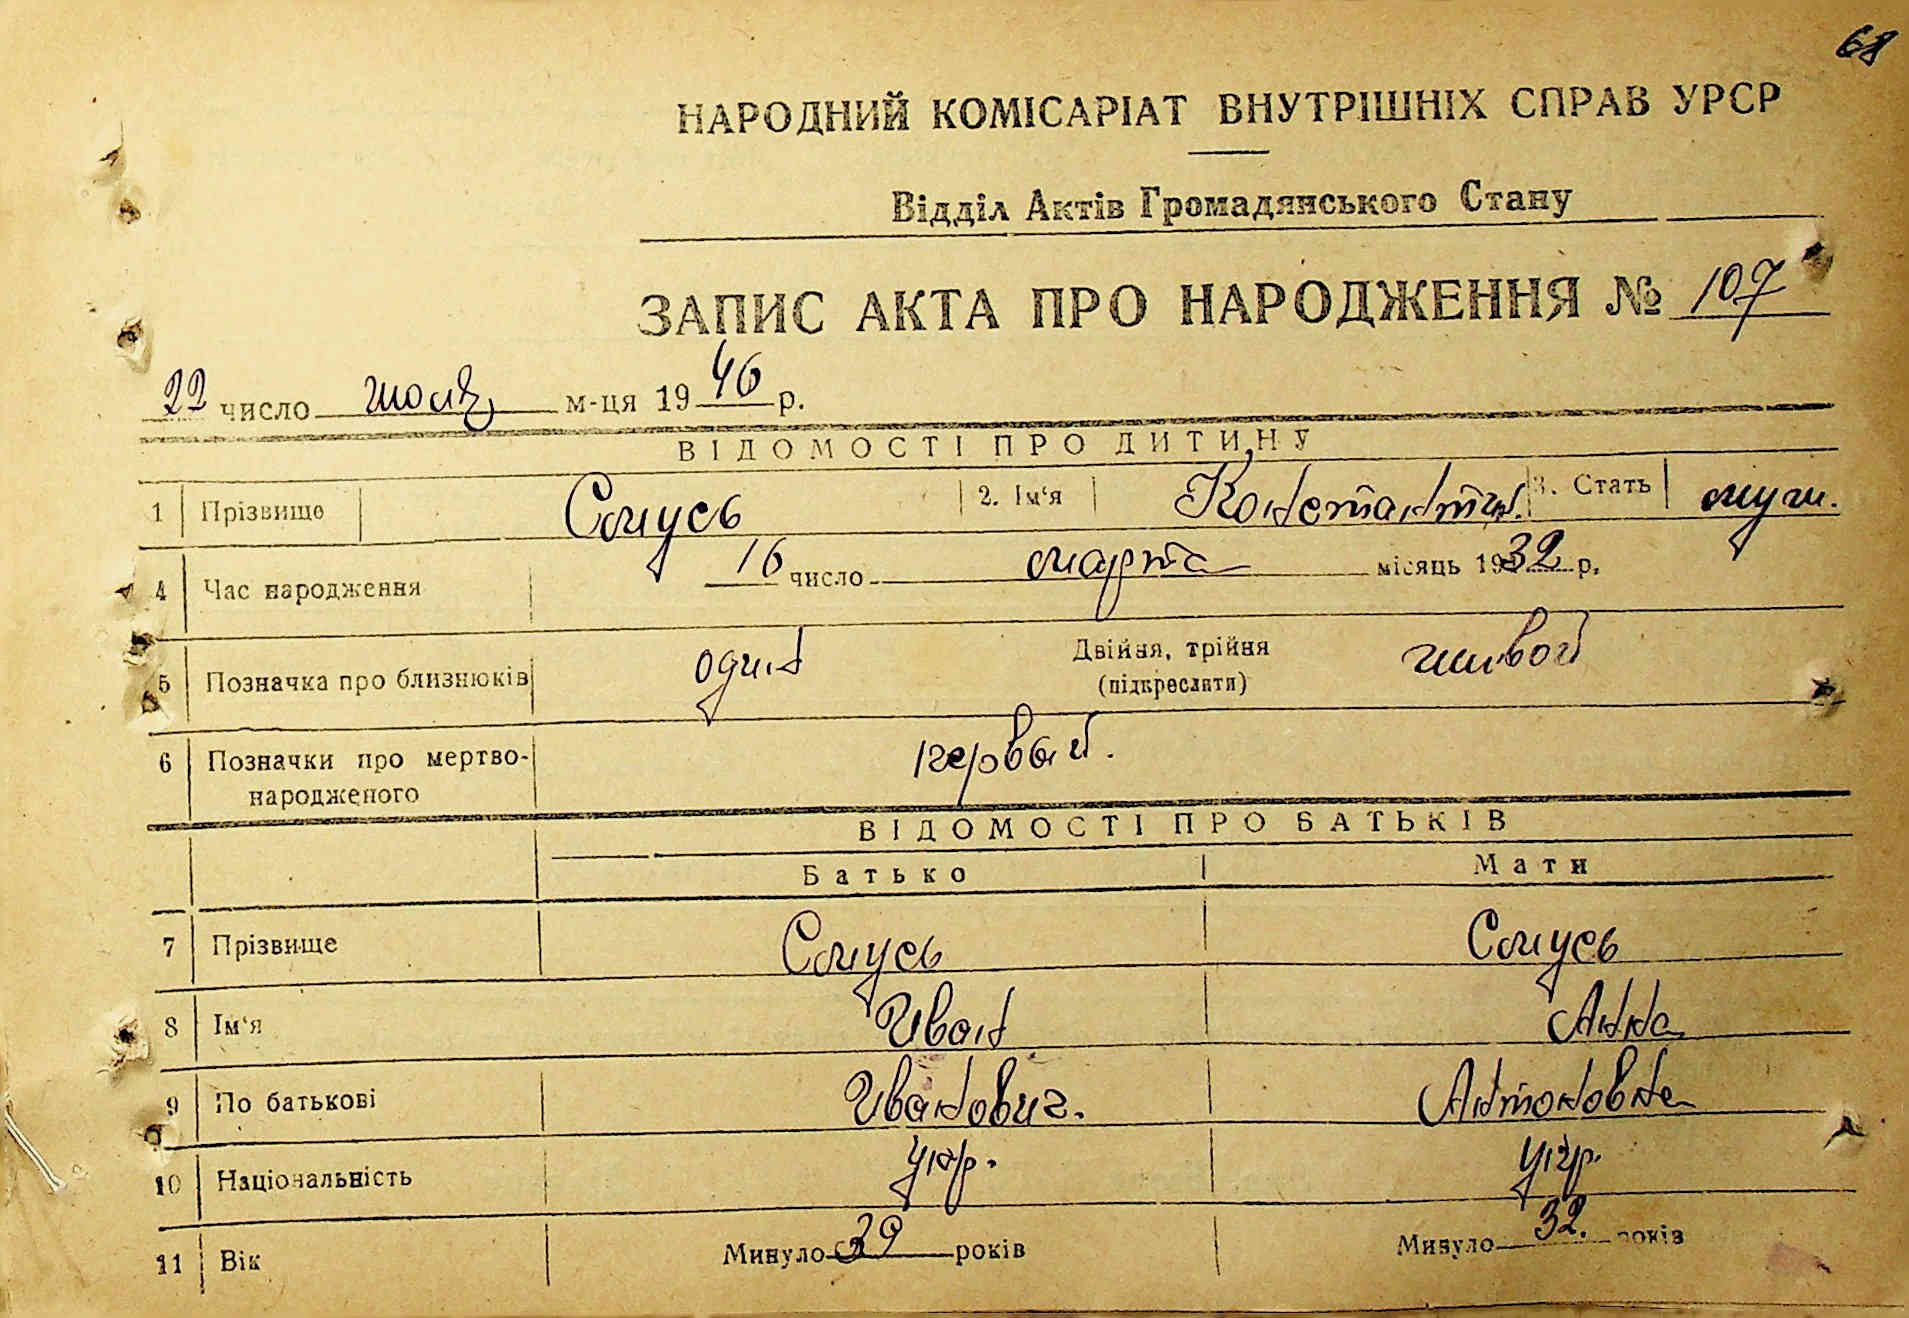 68
НАРОДНИЙ КОМІСАРІАТ ВНУТРІШНІХ СПРАВ УРСР
Відділ Актів Громадянського Стану
ЗАПИС АКТА ПРО НАРОДЖЕННЯ № 107
22 число июля м-ця 1946 р.
ВІДОМОСТІ ПРО ДИТИНУ
1 Прізвище Смусь 2. Ім‘я Константин. 3. Стать муж.
4 Час народження 16 число марта місяць 1932 р.
5 Позначка про близнюків один Двійня, трійня (підкреслити) живой
6 Позначки про мертво-
народженого первый.
ВІДОМОСТІ ПРО БАТЬКІВ
Батько Мати
7 Прізвище Смусь Смусь
8 Ім‘я Иван Анна
9 По батькові Иванович. Антоновна
10 Національність укр. укр.
11 Вік Минуло 39 років Минуло 32. років